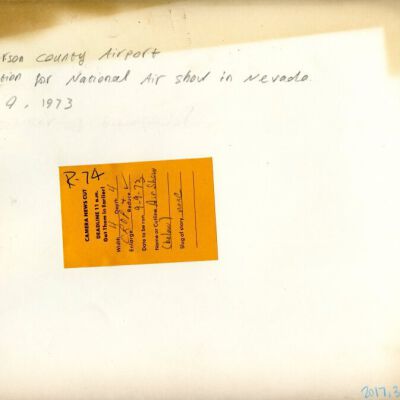 rson County Airport
tion for National Air show in Nevada.
9, 1973
P. 74
CAMERA NEWS CUT
DEADLINE 11 a.m.
Get Them in Earlier!
Width 4 Depth 4
Enlarge Reduce
Date to be run 9-9-73
Name or Cutline Air Show
Slug of story
2017.3